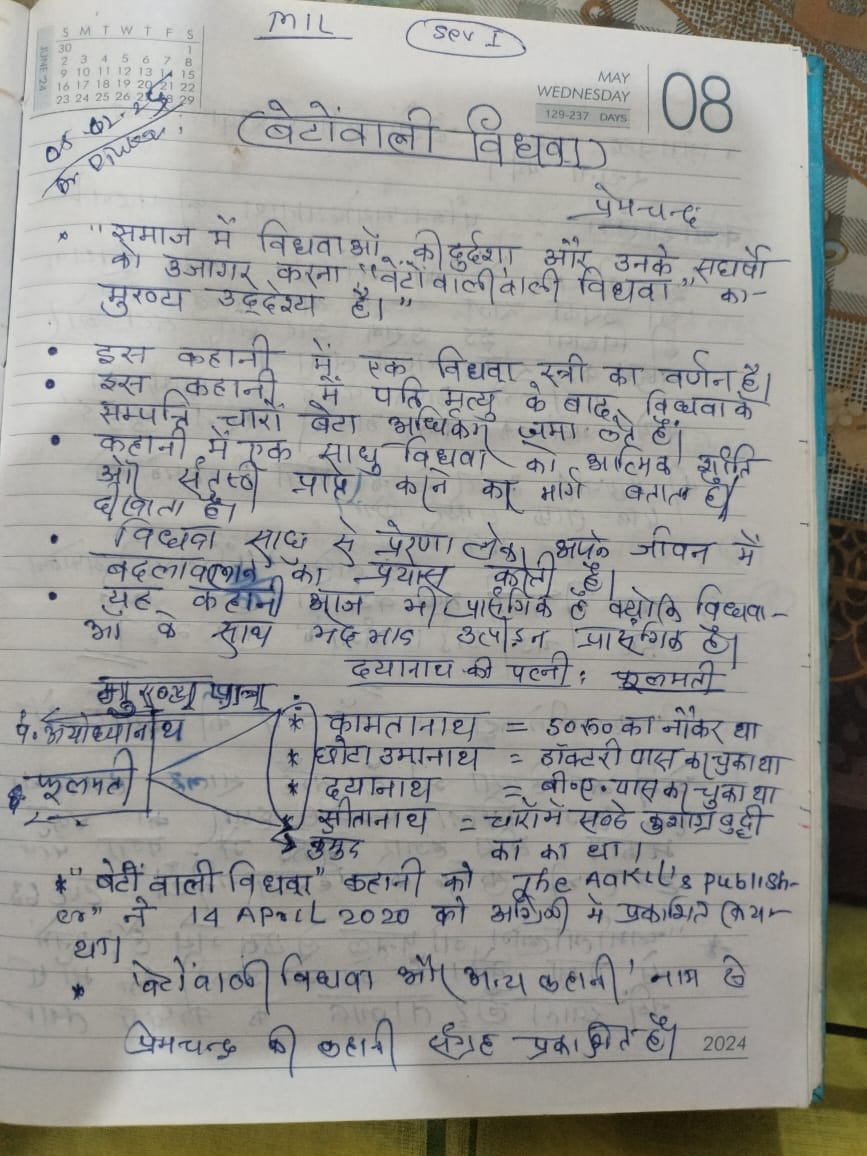 MIL
Sev I
S M T W T F S
30 1
2 3 4 5 6 7 8
9 10 11 12 13 14 15
16 17 18 19 20 21 22
23 24 25 26 27 28 29
JUNE '24
MAY
WEDNESDAY
129-237 DAYS
08
बेटोंवाली विधवा
प्रेमचन्द
* "समाज में विधवाओं की दुर्दशा और उनके संघर्षो
को उजागर करना "बेटोंवाली वाली विधवा" का-
मुख्य उद्देश्य है।"
• इस कहानी में एक विधवा स्त्री का वर्णन है।
• इस कहानी में पति मृत्यु के बाद, विधवा के
सम्पत्ति चारों बेटा अधिकार जमा लेते हैं।
• कहानी में एक साधु विधवा को आत्मिक शांति
औ संतुष्टी प्राप्त करने का मार्ग बताता है।
दीखाता है।
• विधवा साधु से प्रेरणा लेकर अपने जीवन में
बदलाव लाने का प्रयास करती है।
• यह कहानी आज भी प्रासंगिक है क्योकि विधवा-
ओ के साथ भेदभाव उत्पीड़न प्रासंगिक है।
दयानाथ की पत्नी : फूलमती
मुख्य पात्र :
पं. अयोध्यानाथ
फूलमती
* कामतानाथ = 50रु0 का नौकर था
* छोटा उमानाथ = डॉक्टरी पास कर चुका था
* दयानाथ = बी०ए० पास कर चुका था
* सीतानाथ = चारों में सबसे कुशाग्र बुद्दी
का का था।
कुमुद
* "बेटों वाली विधवा" कहानी को The Aakil's publish-
er" ने 14 APril 2020 को अंग्रेजी में प्रकाशित किया-
था।
* 'बेटोंवाली विधवा और अन्य कहानी' नाम से
प्रेमचन्द की कहानी संग्रह प्रकाशित है।
2024